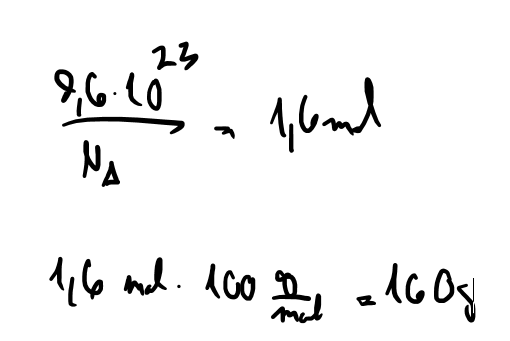 9,6·10²³ / N_A = 1,6 mol
1,6 mol · 100 g/mol = 160g